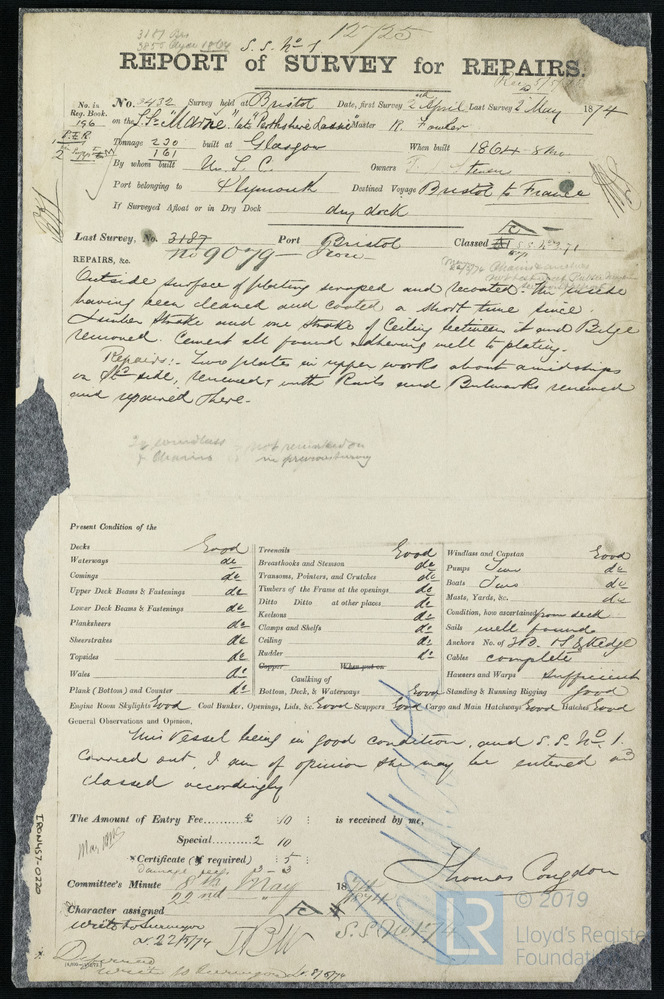 12725
S. S. No 1
REPORT of SURVEY for REPAIRS.
No. in Reg. Book. 196
No. 3432 Survey held at Bristol Date, first Survey 2nd April Last Survey 2 May 1874
on the S.S. "Marne" late "Perthshire Lassie" Master R. Fowler
Tonnage 230 built at Glasgow When built 1864-8mo
161
By whom built Owners
Port belonging to Plymouth Destined Voyage Bristol to France
If Surveyed Afloat or in Dry Dock dry dock
Last Survey, No. 3187 Port Bristol Classed
No 9079 Iron
REPAIRS, &c.
Outside surface of plating scraped and recoated. the inside
having been cleaned and coated a short time since.
Limber Strake and one Strake of Ceiling between it and Bilge
removed. Cement all found adhering well to plating.
Repairs:- Two plates in upper works about amidships
on side, renewed, with Rails and Bulwarks renewed
and repaired there.
not remarked on
in previous survey
Present Condition of the
Decks Good
Waterways do
Comings do
Upper Deck Beams & Fastenings do
Lower Deck Beams & Fastenings do
Planksheers do
Sheerstrakes do
Topsides do
Wales do
Plank (Bottom) and Counter do
Treenails Good
Breasthooks and Stemson do
Transoms, Pointers, and Crutches do
Timbers of the Frame at the openings do
Ditto Ditto at other places do
Keelsons do
Clamps and Shelfs do
Ceiling do
Rudder do
Copper When put on
Caulking of
Bottom, Deck, & Waterways Good
Windlass and Capstan Good
Pumps Two do
Boats Two do
Masts, Yards, &c. do
Condition, how ascertained from deck
Sails well found
Anchors No. of 3B. 1S & Kedge
Cables complete
Hawsers and Warps sufficient
Standing & Running Rigging good
Engine Room Skylights Good Coal Bunker, Openings, Lids, &c. Good Scuppers Good Cargo and Main Hatchways Good Hatches Good
General Observations and Opinion,
This Vessel being in good condition, and S. S. No. 1.
carried out, I am of opinion she may be entered and
classed accordingly
The Amount of Entry Fee......... £ : 10 : is received by me,
Special......... 2 10
Certificate (if required) : 5 :
Damage fees 3-3
Thomas Congdon
Committee's Minute 8th May 1874
22nd " 1874
Character assigned
Write to Surveyor
22/5/74
S.S. No 1 74
Deferred
write to Surveyor 8/5/74
IRON457-0220
LR
© 2019
Lloyd's Register
Foundation